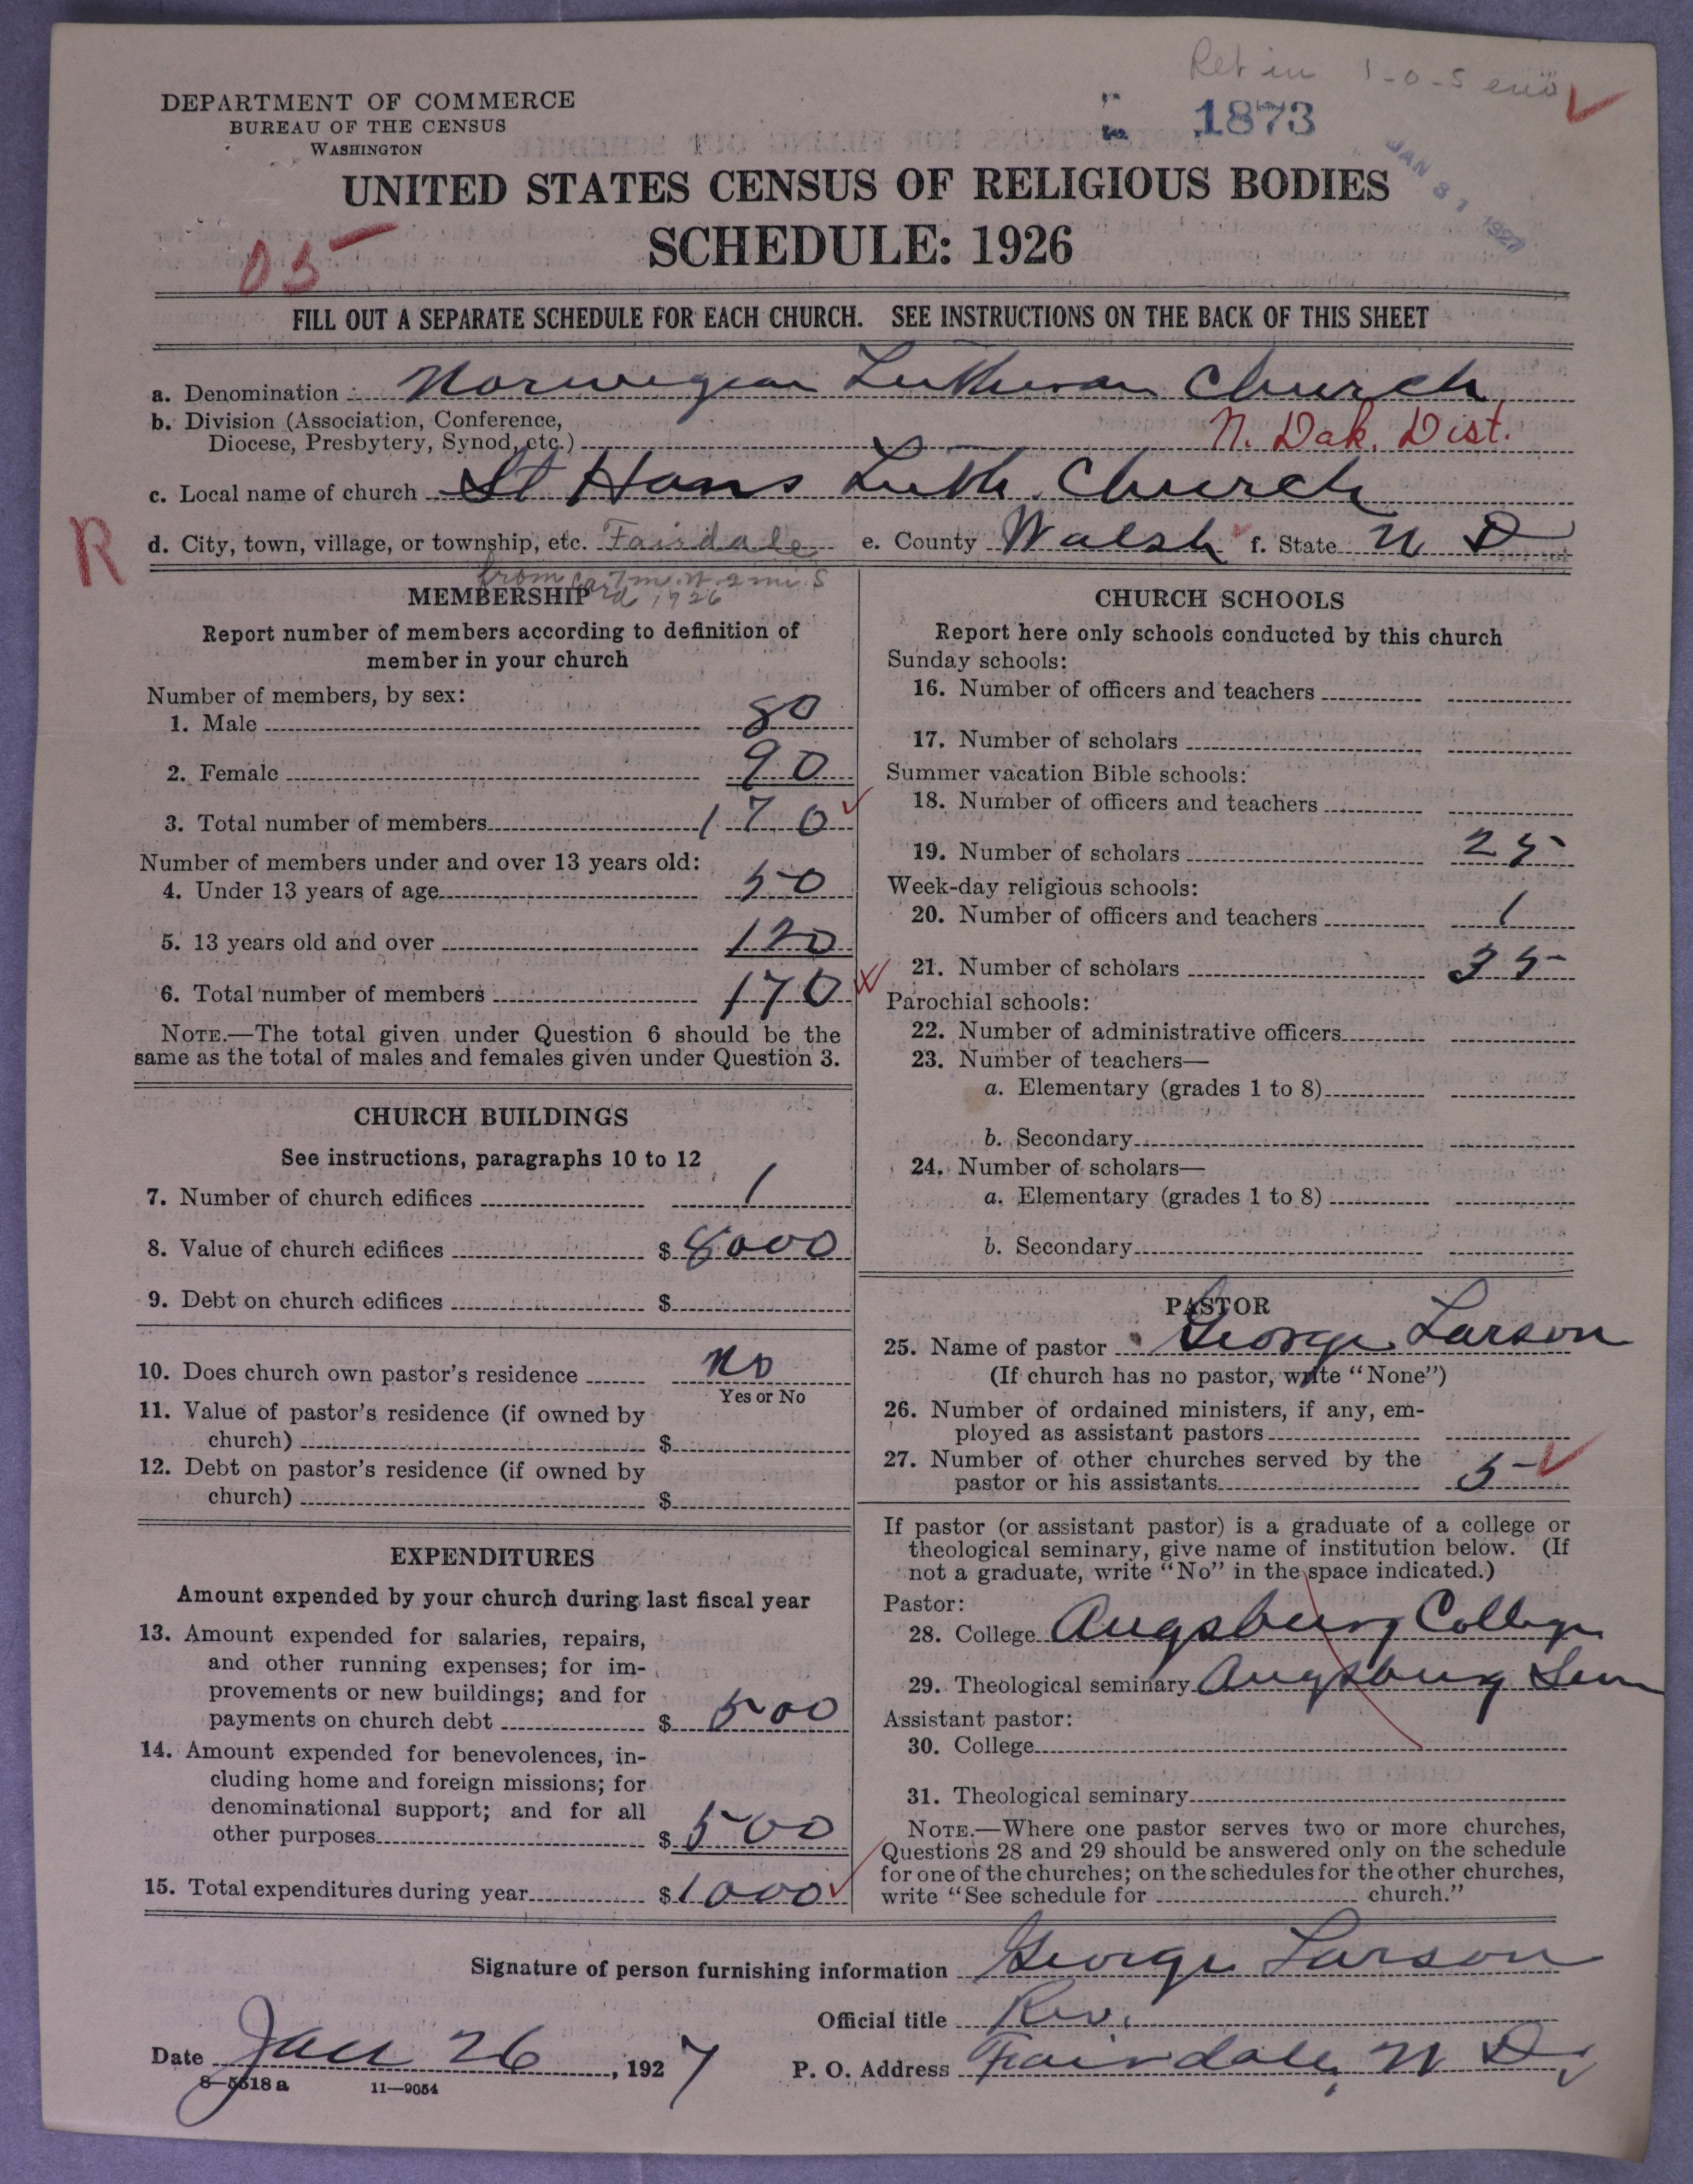 Ret in 1-0-5 env
DEPARTMENT OF COMMERCE
BUREAU OF THE CENSUS
WASHINGTON
1873
JAN 31 1927
UNITED STATES CENSUS OF RELIGIOUS BODIES
SCHEDULE: 1926
05
FILL OUT A SEPARATE SCHEDULE FOR EACH CHURCH. SEE INSTRUCTIONS ON THE BACK OF THIS SHEET
a. Denomination Norwegian Lutheran Church
b. Division (Association, Conference,
Diocese, Presbytery, Synod, etc.) N. Dak. Dist.
c. Local name of church St Hans Luth. Church
R
d. City, town, village, or township, etc. Fairdale e. County Walsh f. State N D
from card 7 mi. W. 2 mi. S
1926
MEMBERSHIP
Report number of members according to definition of
member in your church
Number of members, by sex:
1. Male 80
2. Female 90
3. Total number of members 170
Number of members under and over 13 years old:
4. Under 13 years of age 50
5. 13 years old and over 120
6. Total number of members 170
NOTE.—The total given under Question 6 should be the
same as the total of males and females given under Question 3.
CHURCH BUILDINGS
See instructions, paragraphs 10 to 12
7. Number of church edifices 1
8. Value of church edifices $ 8000
9. Debt on church edifices $
10. Does church own pastor's residence No
Yes or No
11. Value of pastor's residence (if owned by
church) $
12. Debt on pastor's residence (if owned by
church) $
EXPENDITURES
Amount expended by your church during last fiscal year
13. Amount expended for salaries, repairs,
and other running expenses; for im-
provements or new buildings; and for
payments on church debt $ 500
14. Amount expended for benevolences, in-
cluding home and foreign missions; for
denominational support; and for all
other purposes $ 500
15. Total expenditures during year $ 1000
CHURCH SCHOOLS
Report here only schools conducted by this church
Sunday schools:
16. Number of officers and teachers
17. Number of scholars
Summer vacation Bible schools:
18. Number of officers and teachers
19. Number of scholars 25
Week-day religious schools:
20. Number of officers and teachers 1
21. Number of scholars 35
Parochial schools:
22. Number of administrative officers
23. Number of teachers—
a. Elementary (grades 1 to 8)
b. Secondary
24. Number of scholars—
a. Elementary (grades 1 to 8)
b. Secondary
PASTOR
25. Name of pastor George Larson
(If church has no pastor, write "None")
26. Number of ordained ministers, if any, em-
ployed as assistant pastors
27. Number of other churches served by the
pastor or his assistants 5
If pastor (or assistant pastor) is a graduate of a college or
theological seminary, give name of institution below. (If
not a graduate, write "No" in the space indicated.)
Pastor:
28. College Augsburg College
29. Theological seminary Augsburg Sem
Assistant pastor:
30. College
31. Theological seminary
NOTE.—Where one pastor serves two or more churches,
Questions 28 and 29 should be answered only on the schedule
for one of the churches; on the schedules for the other churches,
write "See schedule for church."
Signature of person furnishing information George Larson
Official title Rev.
Date Jan 26, 1927 P. O. Address Fairdale, N D.
8-5518 a 11-9054